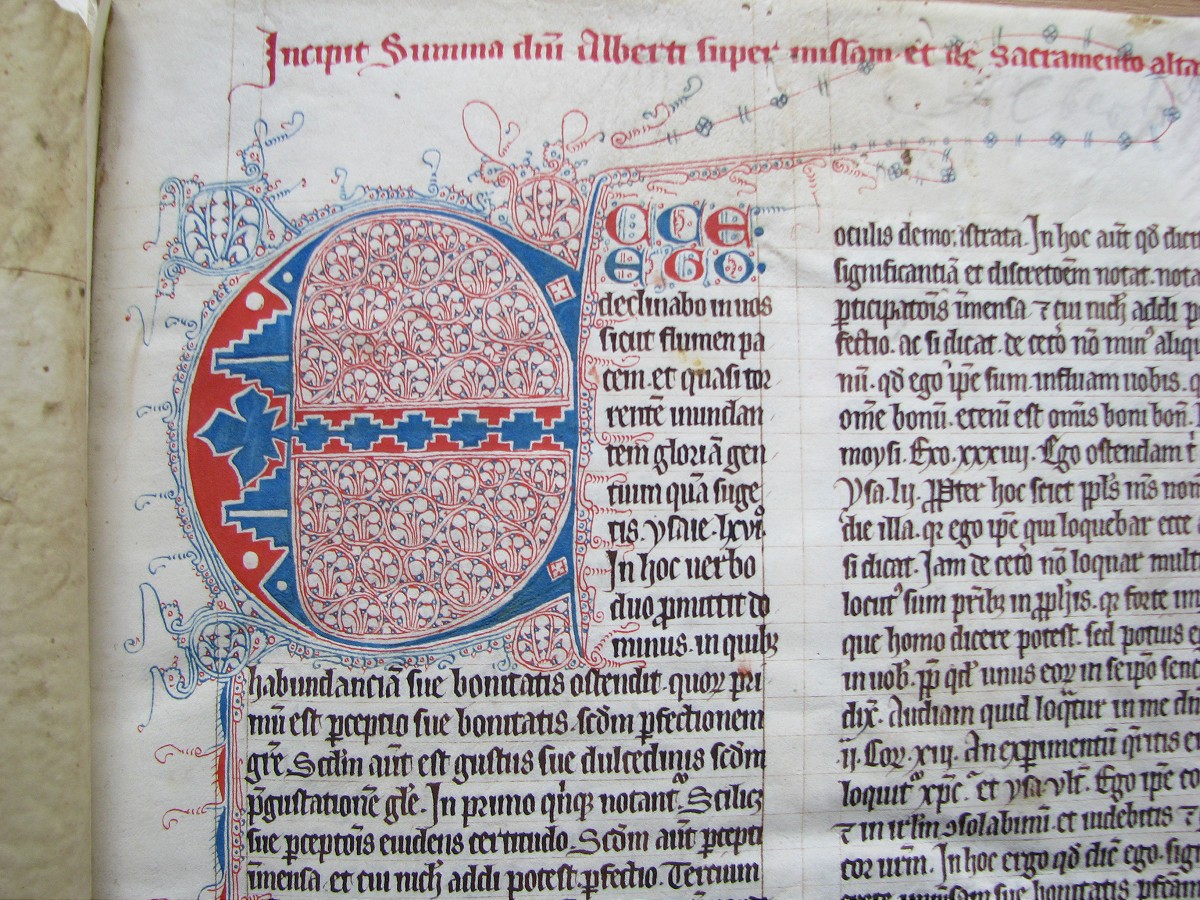 Incipit Summa dñi Alberti super missam et de Sacramento alta
ECCE
EGO
declinabo in uos
sicut flumen pa
cem et quasi tor
rentẽ inundan
tem gloriã gen
tium quã suge
tis. ysaie lxvi.
In hoc uerbo
duo ꝓmittit do
minus. in quibꝫ
habundanciã sue bonitatis ostendit. quoꝝ pri
mũ est ꝑceptio sue bonitatis. scd̃m ꝑfectionem
gr̃e. Scd̃m aũt est gustus sue dulcedinis scd̃m
p̃gustationẽ gl̃e. In primo
sue ꝑceptõis euidens certitudo. Scd̃m aũt ꝑcepti
ĩmensa et cui nich̃ addi potest ꝑfectio. Tercium
oculis demonistrata. In hoc aũt qd̃ dict
significantiã et discretoẽm notat. nota
ꝑticipatõis ĩmensa ⁊ cui nich̃ addi p
fectio. ac si dicat. de cetõ nõ minꝰ aliqu
nũ. qd̃ ego ip̃e sum. influam uobis. q
om̃e bonũ. etenĩ est om̃is boni bon̄.
moysi. Exo. xxxiij. Ego ostendam t
Ysa. lij. ꝓpter hoc sciet ppl̃s m̃s nom
die illa. qꝛ ego ip̃e qui loquebar ecce
si dicat. Jam de cetõ nõ loquar mult
locutꝰ sum pr̃ibꝫ in ꝓph̃is. qꝛ forte in
que homo dicere potest. sed potius e
in uob. unus eoꝝ in seipõ sen
dix̃. Audiam quid loq̃tur in me dñ
.ij. Coꝝ. xiij. An exꝑimentũ q̃ritis ei
loquitᷣ xp̃c. et ysa. vlt̃. Ego ip̃e co
⁊ in irl̃m ꝯsolabimĩ. et uidebitis ⁊
cor ur̃m. In hoc ergo qd̃ dic̃ ego. sig
sue bonitatis